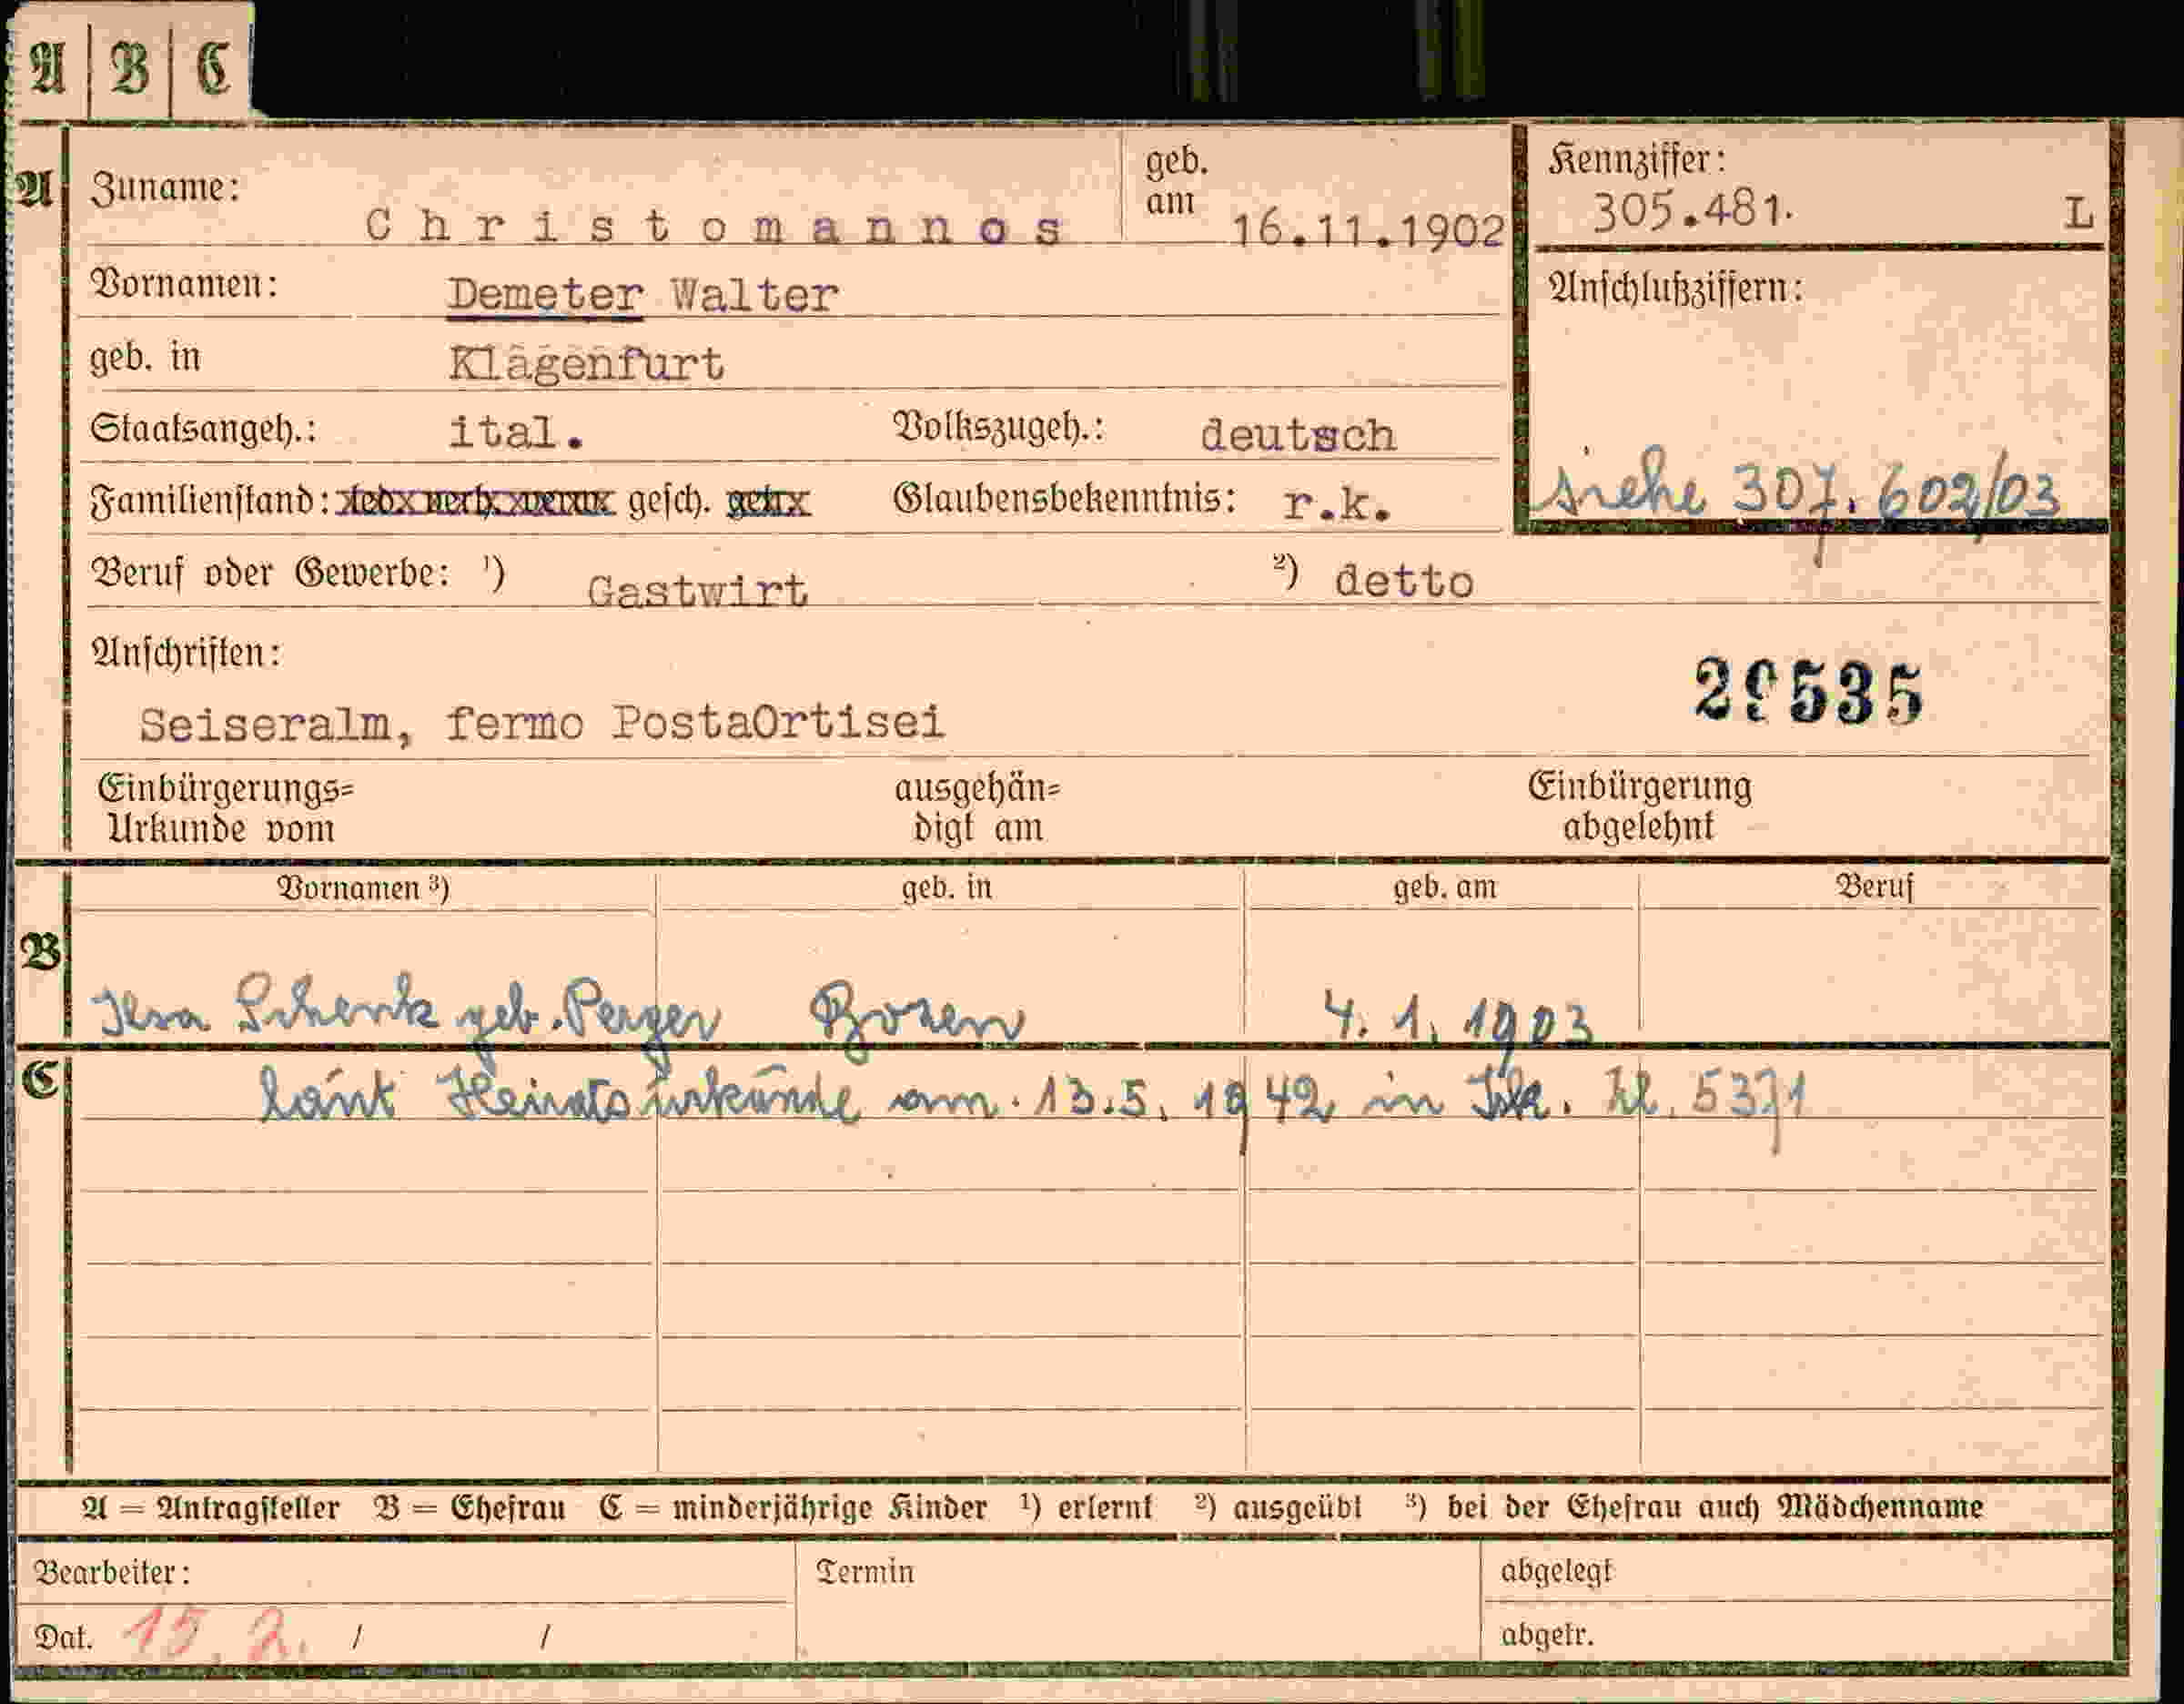 A B C
A Zuname: Christomannos geb. am 16.11.1902 Kennziffer: 305.481. L
Vornamen: Demeter Walter Anschlußziffern:
geb. in Klagenfurt
Staatsangeh.: ital. Volkszugeh.: deutsch
Familienstand: gesch. Glaubensbekenntnis: r.k. siehe 307.602/03
Beruf oder Gewerbe: ¹) Gastwirt ²) detto
Anschriften:
29535
Seiseralm, fermo PostaOrtisei
Einbürgerungs= ausgehän= Einbürgerung
Urkunde vom digt am abgelehnt
Vornamen ³) geb. in geb. am Beruf
B
Ilsa Schenk geb. Perger Bozen 4.1.1903
C
laut Heiratsurkunde am 13.5.1942 in Zl. 5371
A = Antragsteller B = Ehefrau C = minderjährige Kinder ¹) erlernt ²) ausgeübt ³) bei der Ehefrau auch Mädchenname
Bearbeiter: Termin abgelegt
Dat. 15. 2. / / abgetr.